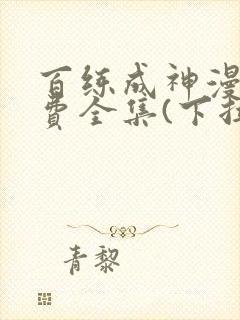 百练成神漫
费全集(下拉
青黎